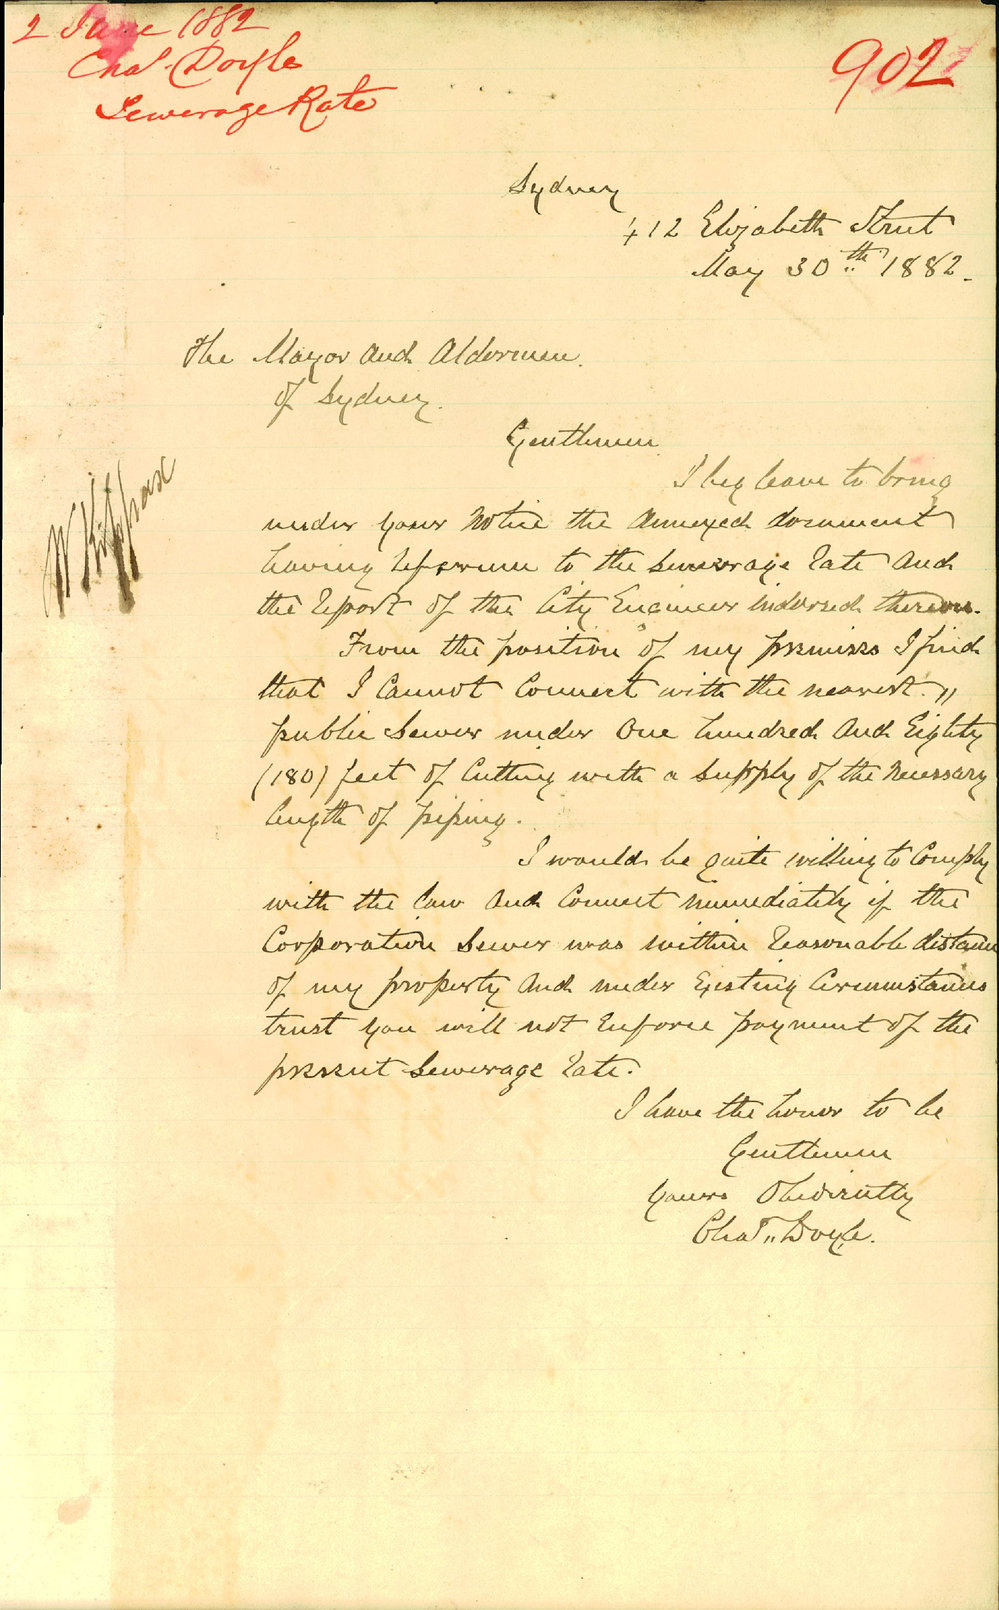 2 June 1882
Chas. Doyle
Sewerage Rate
902
Sydney
412 Elizabeth Street
May 30th 1882.
The Mayor and Aldermen
of Sydney.
Gentlemen
I beg leave to bring
under your Notice the Annexed document
having reference to the Sewerage rate and
the report of the City Engineer indorsed thereon.
From the position of my premises I find
that I Cannot Connect with the nearest
public Sewer under One hundred and Eighty
(180) feet of Cutting with a Supply of the Necessary
length of piping.
I would be quite willing to Comply
with the law and Connect immediately if the
Corporation Sewer was within reasonable distance
of my property and under Existing Circumstances
trust you will not Enforce payment of the
present Sewerage rate.
I have the honor to be
Gentlemen
Yours Obediently
Chas. Doyle.
W Kippax